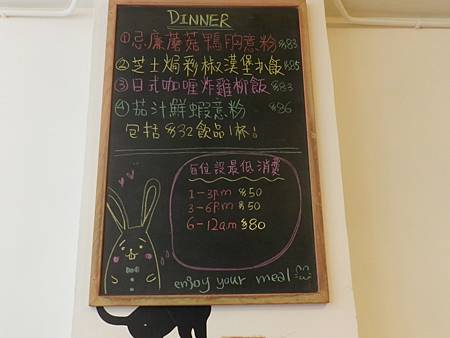 DINNER
① 忌廉蘑菇鴨胸意粉 $83
② 芝士焗彩椒漢堡扒飯 $85
③ 日式咖喱炸雞柳飯 $83
④ 茄汁鮮蝦意粉 $86
包括 $32 飲品1杯!
每位設最低消費
1-3pm $50
3-6pm $50
6-12am $80
enjoy your meal